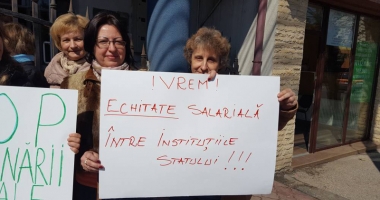 OP
NĂRII
ALE
! VREM !
ECHITATE SALARIALĂ
ÎNTRE INSTITUȚIILE
STATULUI !!!